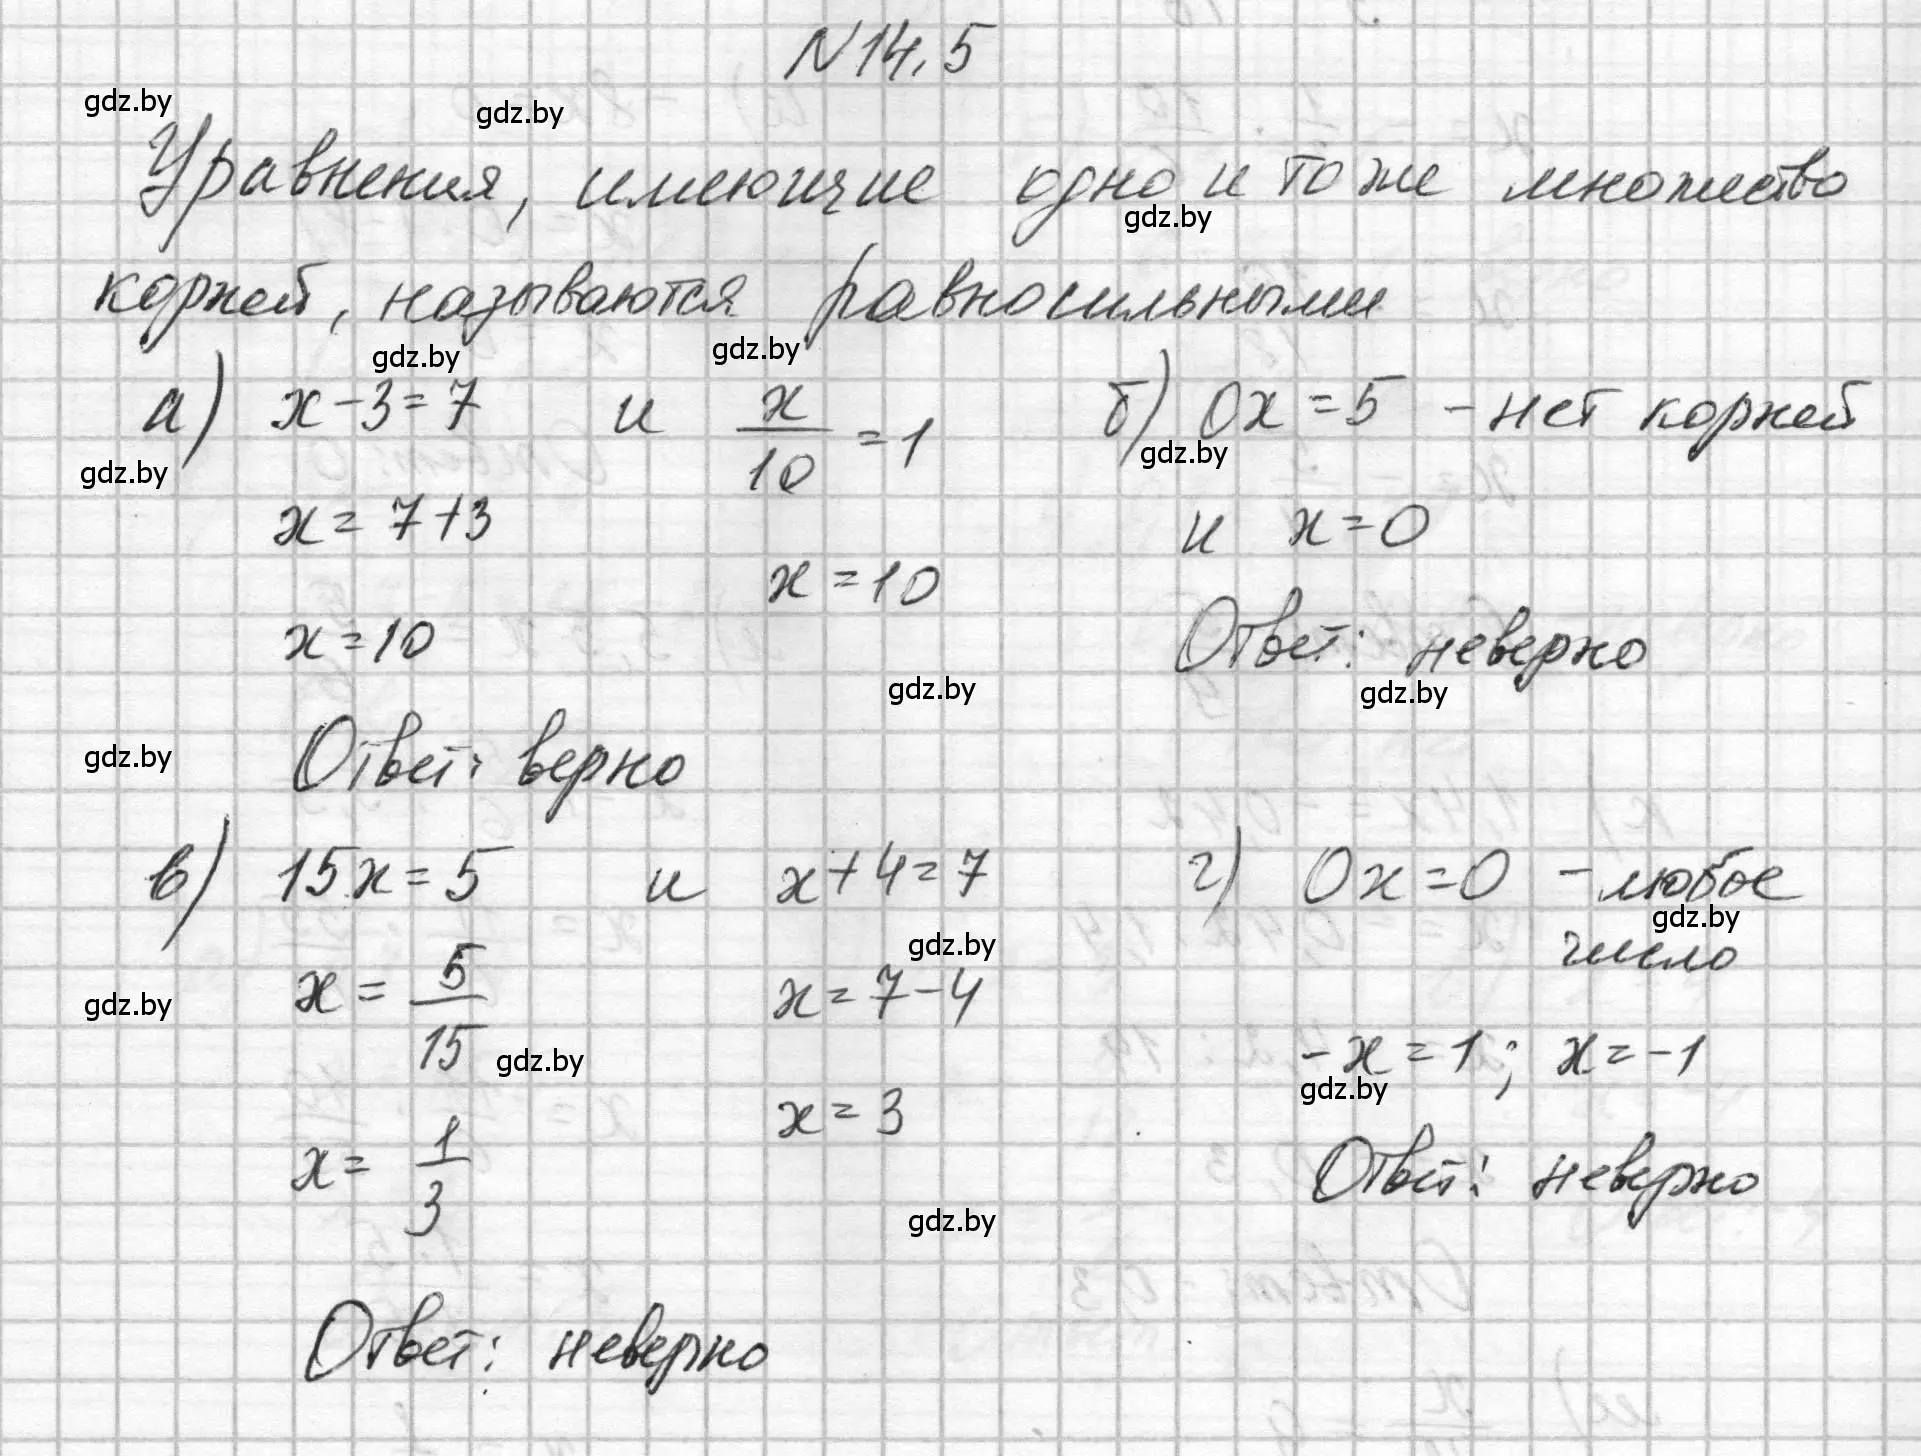 N 14.5
gdz.by gdz.by
Уравнения, имеющие одно и тоже множество
gdz.by
коржей, называются равносильными
gdz.by gdz.by
а) x - 3 = 7 и x/10 = 1
gdz.by
x = 7 + 3
x = 10
x = 10
gdz.by
Ответ: верно
gdz.by
б) 0x = 5 - нет коржей
gdz.by
и x = 0
Ответ: неверно
gdz.by
в) 15x = 5 и x + 4 = 7
gdz.by
x = 5/15 x = 7 - 4
gdz.by gdz.by
x = 1/3 x = 3
gdz.by
Ответ: неверно
г) 0x = 0 - любое
gdz.by
число
-x = 1; x = -1
gdz.by
Ответ: неверно